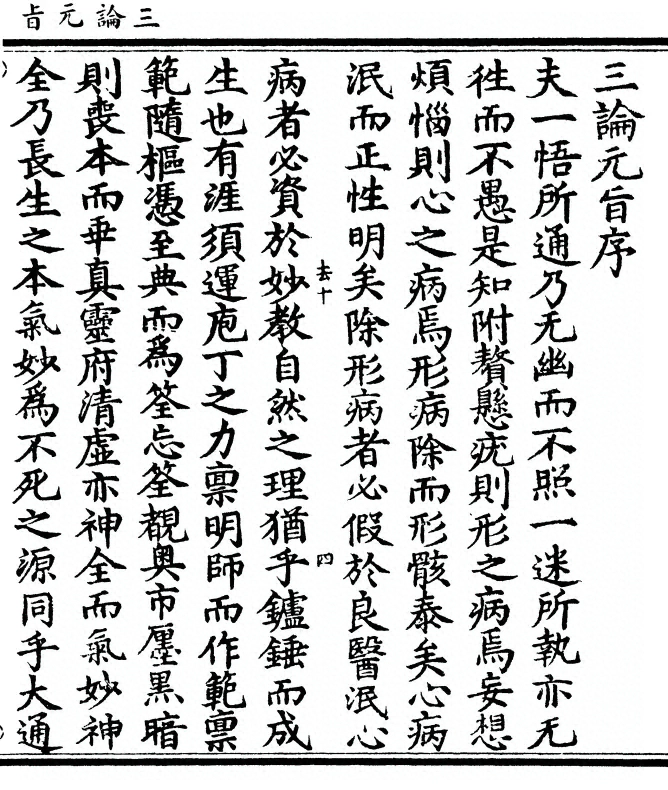 三論元旨
三論元旨序
夫一悟所通乃无幽而不照一迷所執亦无
徃而不愚是知附贅懸疣則形之病焉妄想
煩惱則心之病焉形病除而形骸泰矣心病
泯而正性明矣除形病者必假於良醫泯心
去十
四
病者必資於妙教自然之理猶乎鑪錘而成
生也有涯須運庖丁之力禀明師而作範禀
範隨樞憑至典而爲筌忘筌覩奥市㕓黑暗
則喪本而乖真靈府清虛亦神全而氣妙神
全乃長生之本氣妙爲不死之源同乎大通